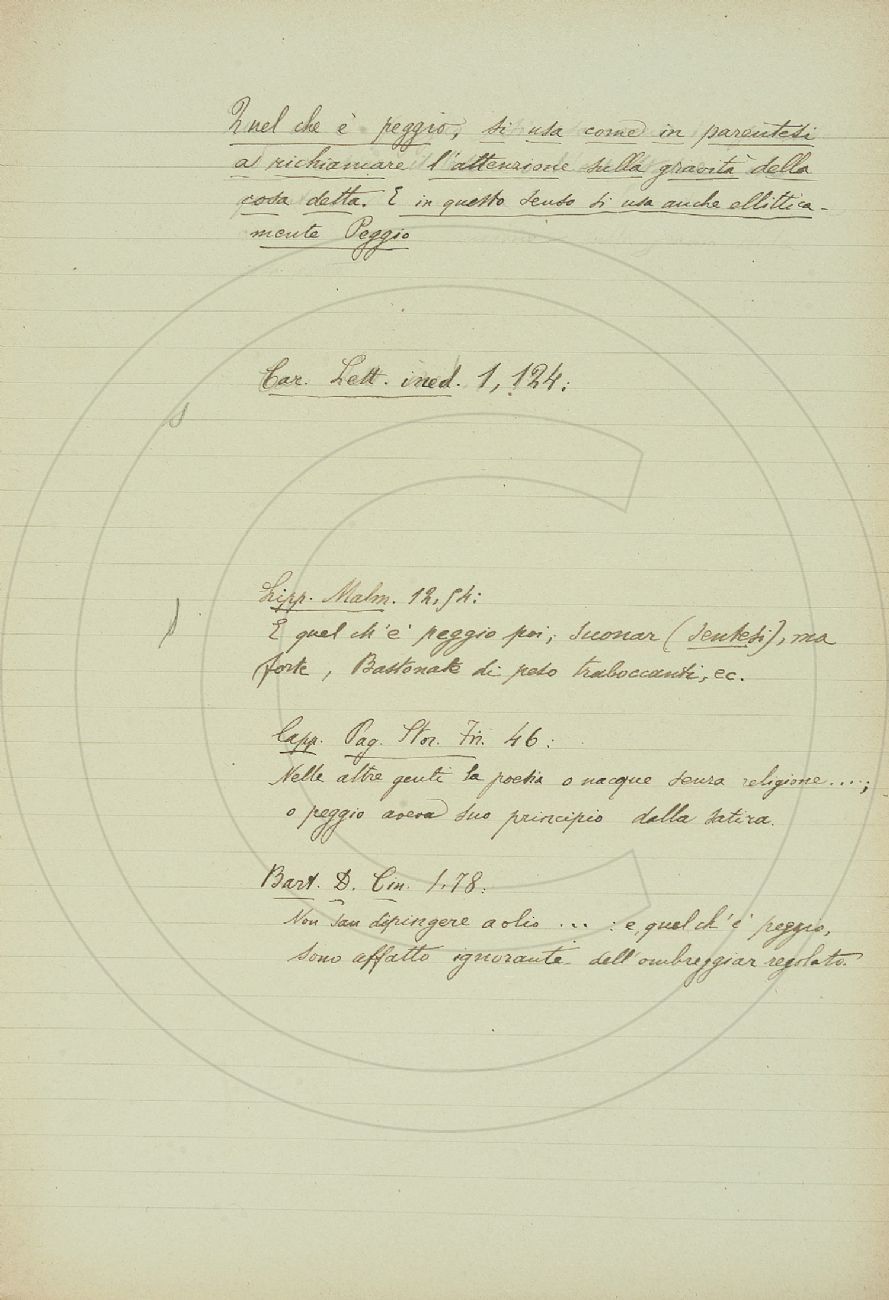 Quel che è peggio, si usa come in parentesi
a richiamare l'attenzione sulla gravità della
cosa detta. E in questo senso si usa anche ellittica-
mente Peggio
Car. Lett. ined. 1, 124:
Lipp. Malm. 12, 54:
E quel ch'è peggio poi, suonar (sentesi), ma
forte, Bastonate di peso traboccanti, ec.
Capp. Pag. Stor. Fir. 46:
Nelle altre genti la poesia o nacque senza religione....;
o peggio aveva suo principio dalla satira.
Bart. D. Cin. 1. 78:
Non san dipingere a olio ... : e, quel ch'è peggio,
sono affatto ignorante dell'ombreggiar regolato.